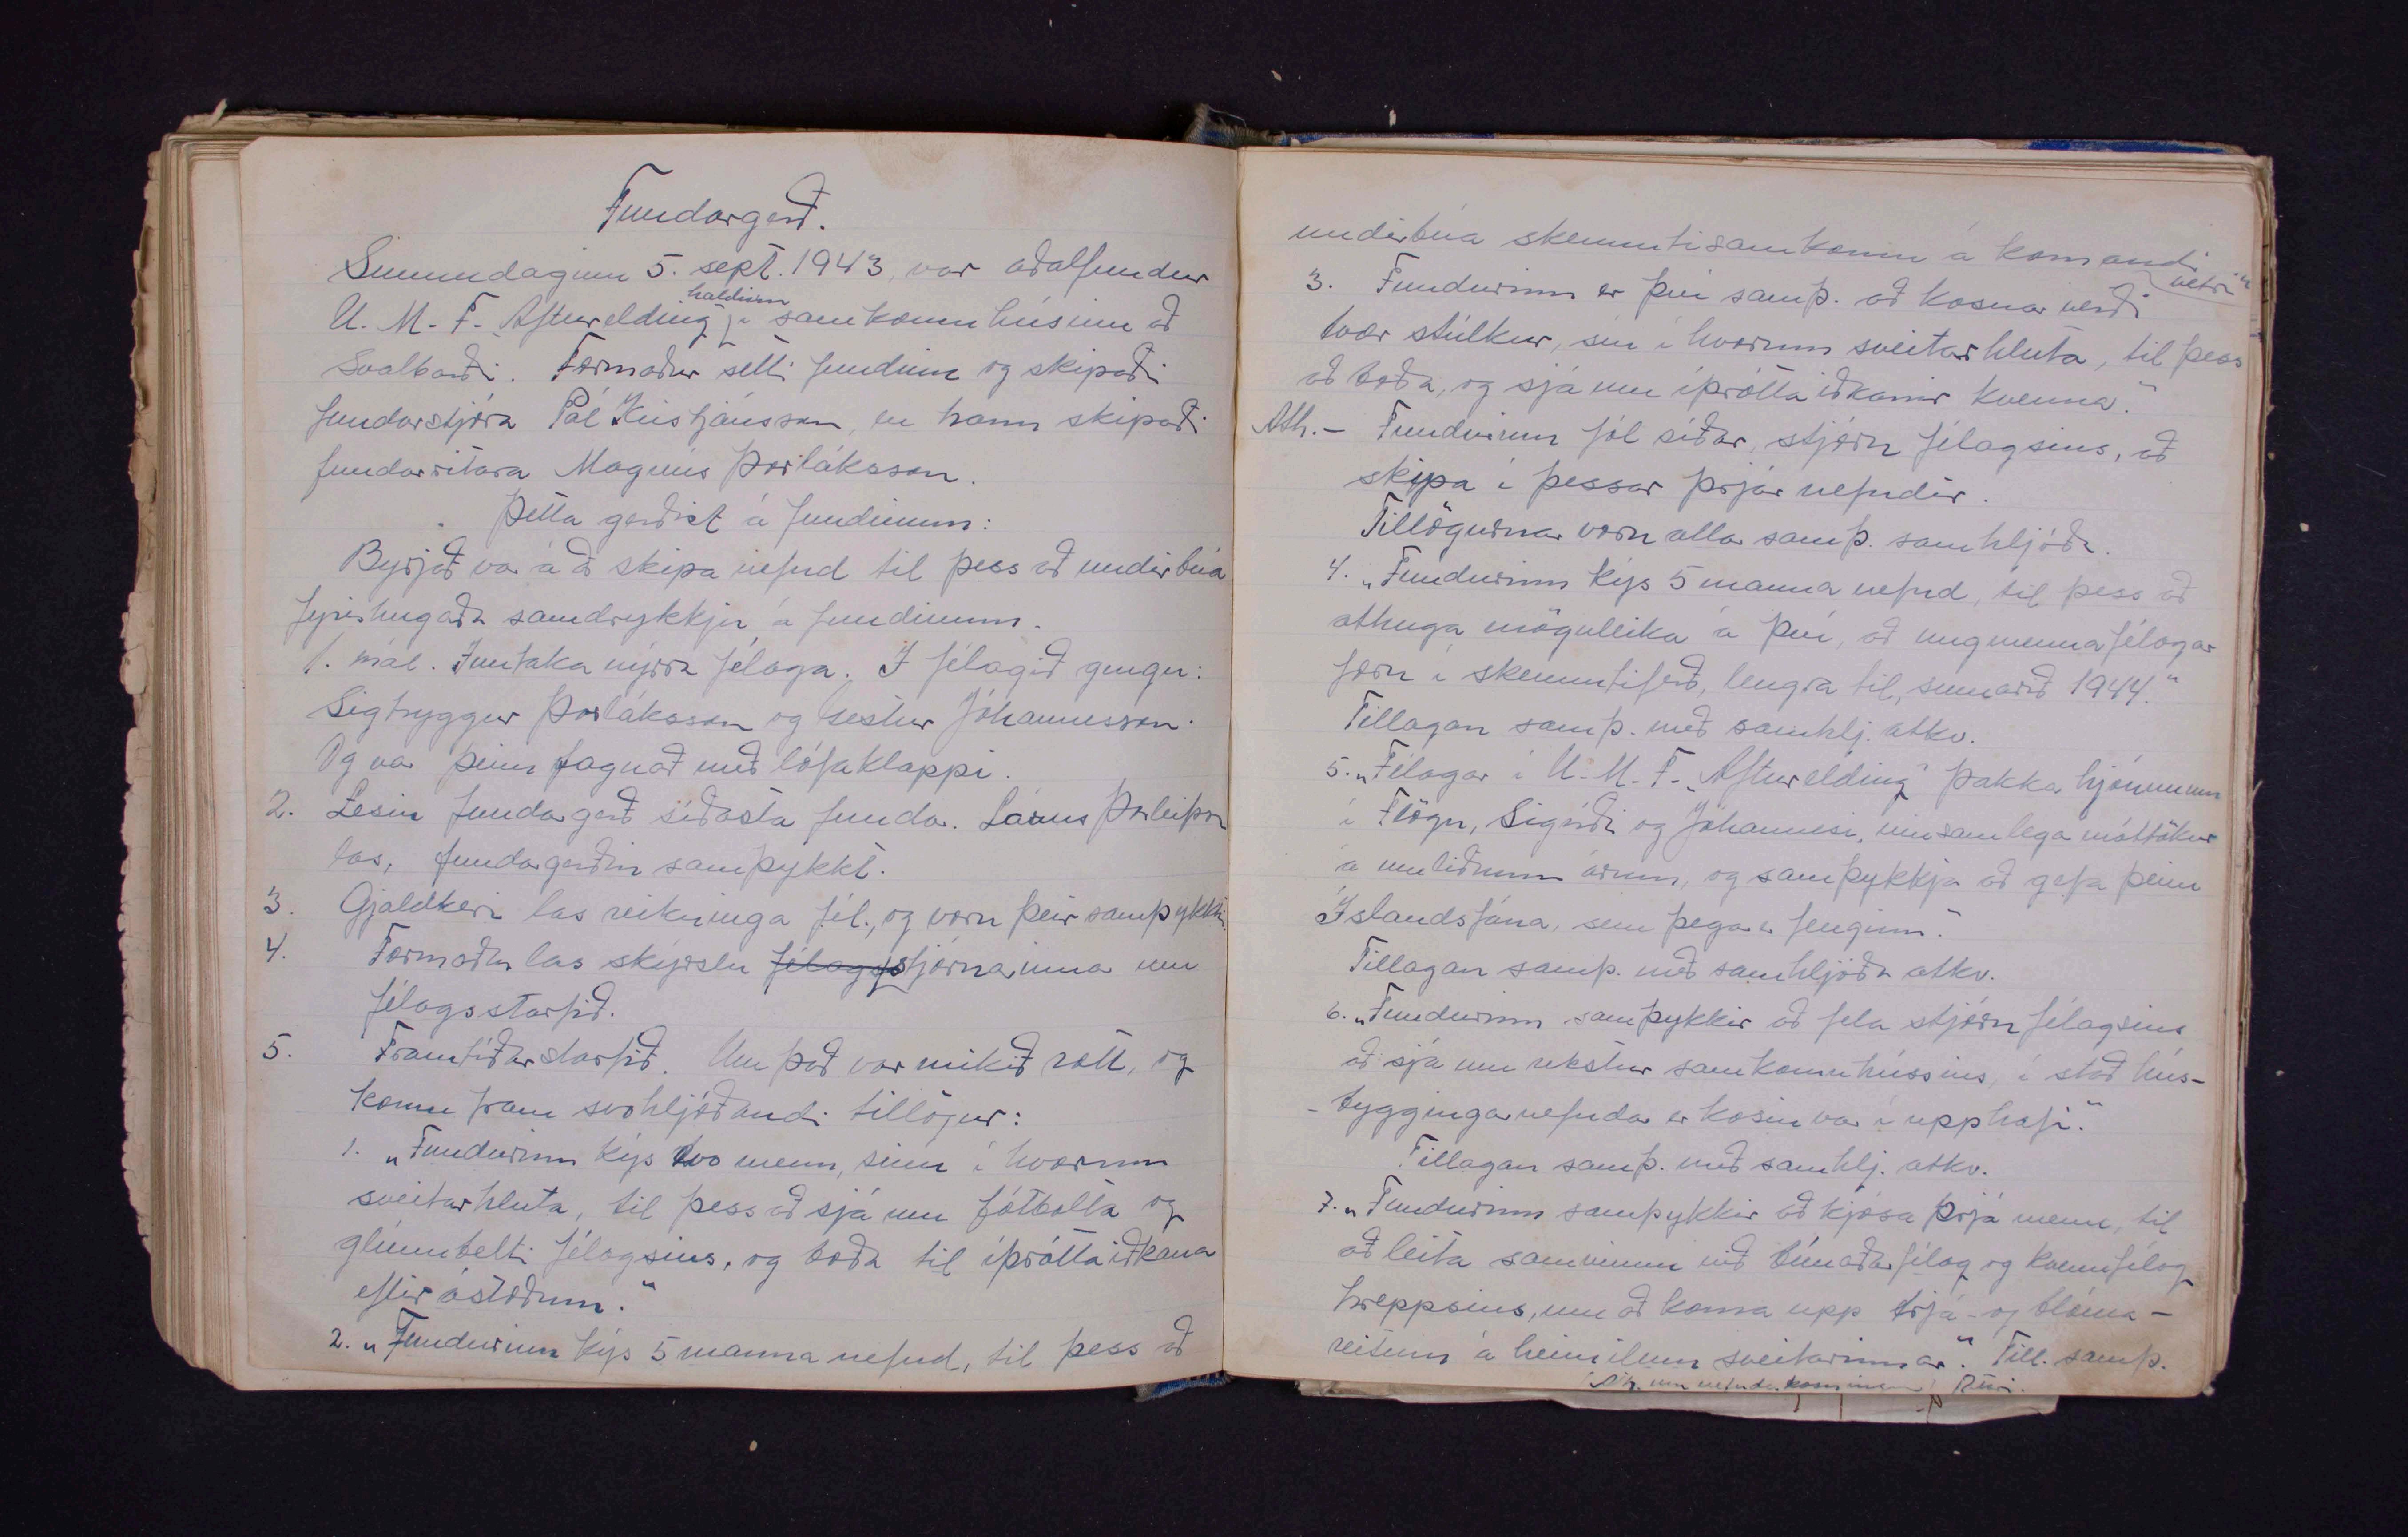 Fundargerð.
Sunnudaginn 5. sept. 1943, var aðalfundur
U. M. F. „Afturelding" haldinn í samkomuhúsinu að
Svalbarði. Formaður setti fundinn og skipaði
fundarstjóra Pál Kristjánsson, en hann skipaði
fundarritara Magnús Þorláksson.
Þetta gerðist á fundinum:
Byrjað var á að skipa nefnd til þess að undirbúa
fyrirhugaða samdrykkju á fundinum.
1. mál. Inntaka nýrra félaga. Í félagið gengu:
Sigtryggur Þorláksson og Gestur Jóhannesson.
Og var þeim fagnað með lófaklappi.
2. Lesin fundargerð síðasta fundar. Lárus Þorleifsson
las, fundargerðin samþykkt.
3. Gjaldkeri las reikninga fél., og voru þeir samþykktir.
4. Formaður las skýrslu félags stjórnarinnar um
félagsstarfið.
5. Framtíðarstarfið. Um það var mikið rætt, og
komu fram svohljóðandi tillögur:
1. „Fundurinn kýs tvo menn, sinn í hvorum
sveitarhluta, til þess að sjá um fótbolta og
glímubelti félagsins, og boða til íþróttaiðkana
eftir ástæðum."
2. „Fundurinn kýs 5 manna nefnd, til þess að
undirbúa skemmtisamkomu á komandi
vetri"
3. Fundurinn er því samþ. að kosnar verði
tvær stúlkur, sín í hvorum sveitarhluta, til þess
að boða, og sjá um íþróttaiðkanir kvenna."
Ath. – Fundurinn fól síðar, stjórn félagsins, að
skipa í þessar þrjár nefndir.
Tillögurnar voru allar samþ. samhljóða.
4. „Fundurinn kýs 5 manna nefnd, til þess að
athuga möguleika á því, að ungmennafélagar
færu í skemmtiferð, lengra til, sumarið 1944."
Tillagan samþ. með samhlj. atkv.
5. „Félagar í U. M. F. „Afturelding" þakka hjónunum
í Flögu, Sigríði og Jóhannesi, vinsamlega móttökur
á umliðnum árum, og samþykkja að gefa þeim
Íslandsfána, sem þegar er fenginn."
Tillagan samþ. með samhljóða atkv.
6. „Fundurinn samþykkir að fela stjórn félagsins
að sjá um rekstur samkomuhússins, í stað hús-
-bygginganefndar er kosin var í upphafi."
Tillagan samþ. með samhlj. atkv.
7. „Fundurinn samþykkir að kjósa þrjá menn, til
að leita samvinnu við búnaðarfélag og kvenfélag
hreppsins, um að koma upp trjá- og blóma-
reitum á heimilum sveitarinnar". Till. samþ.
Ath. um nefndar kosninguna